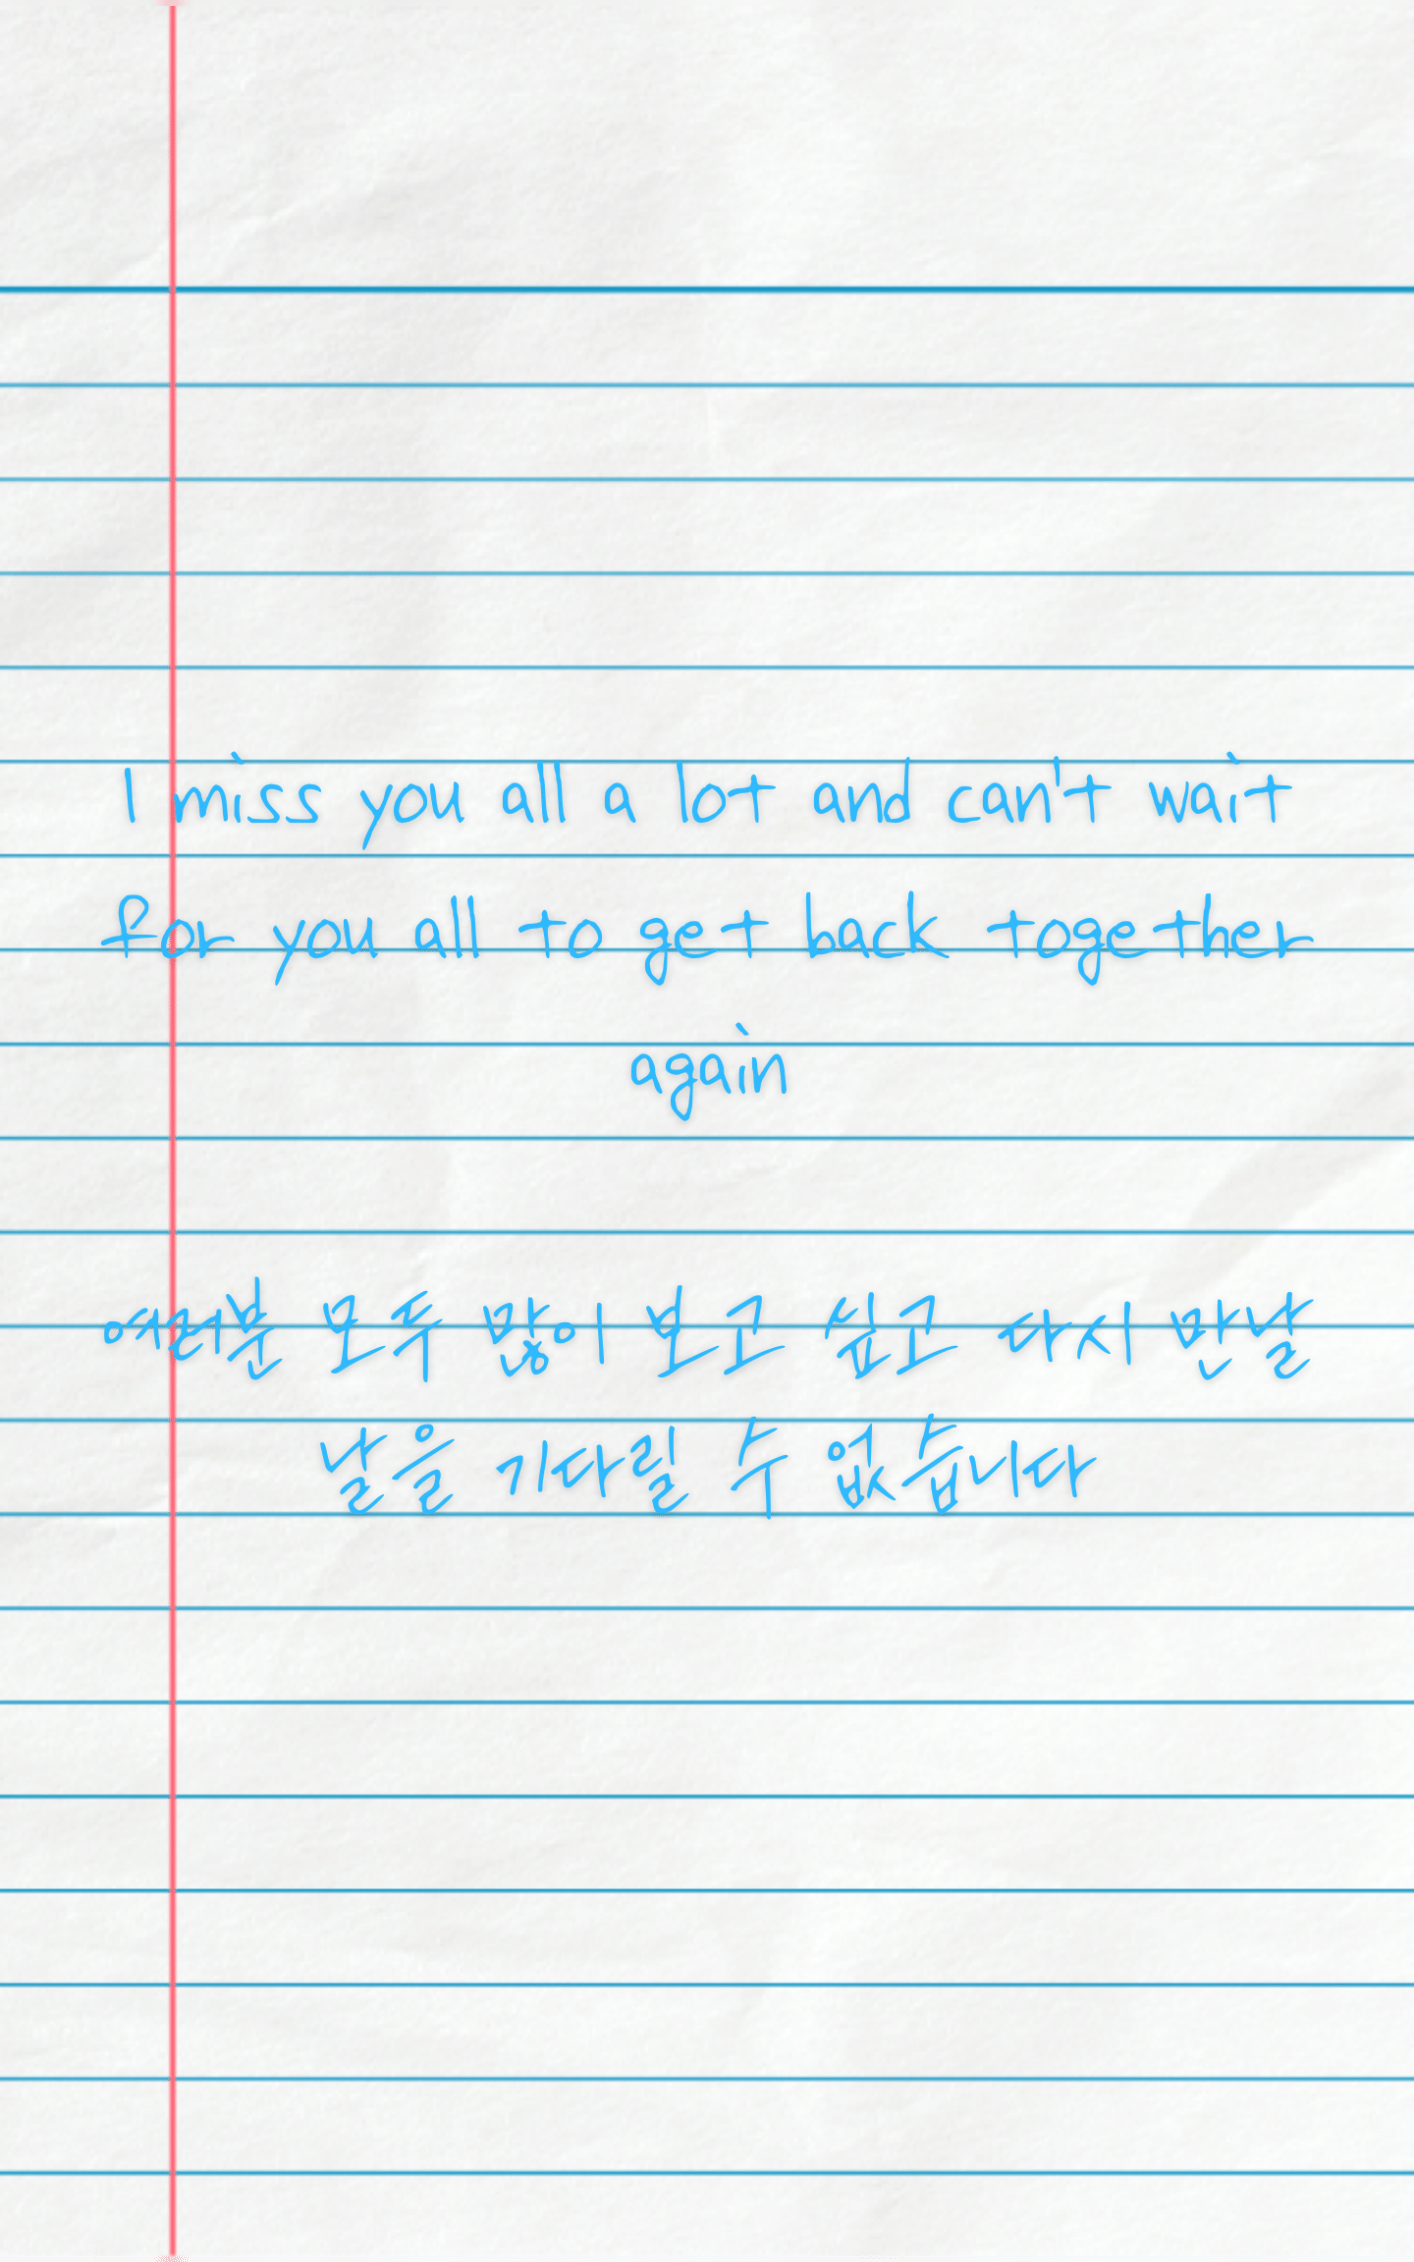 I miss you all a lot and can't wait
for you all to get back together
again
여러분 모두 많이 보고 싶고 다시 만날
날을 기다릴 수 없습니다